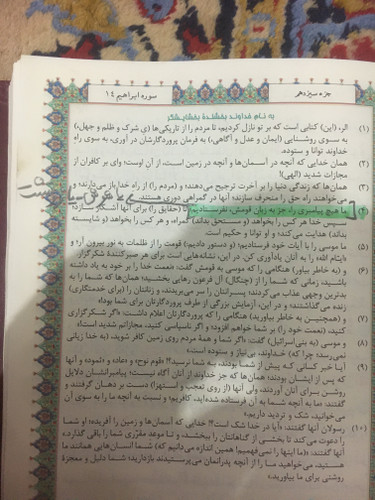 جزء سیزدهم
سوره ابراهیم ۱۴
به نام خداوند بخشندهٔ بخشایشگر
(۱) الر، (این) کتابی است که بر تو نازل کردیم، تا مردم را از تاریکی‌ها (ی شرک و ظلم و جهل،)
به سوی روشنایی (ایمان و عدل و آگاهی،) به فرمان پروردگارشان در آوری، به سوی راه
خداوند توانا و ستوده.
(۲) همان خدایی که آنچه در آسمان‌ها و آنچه در زمین است، از آن اوست؛ وای بر کافران از
مجازات شدید (الهی)!
(۳) همان‌ها که زندگی دنیا را بر آخرت ترجیح می‌دهند؛ و (مردم را) از راه خدا باز می‌دارند؛ و
می‌خواهند راه حق را منحرف سازند؛ آنها در گمراهی دوری هستند.
(۴) ما هیچ پیامبری را، جز به زبان قومش، نفرستادیم؛ تا (حقایق را) برای آنها آشکار سازد؛
سپس خدا هر کس را بخواهد (و مستحق بداند) گمراه، و هر کس را بخواهد (و شایسته
بداند) هدایت می‌کند؛ و او توانا و حکیم است.
(۵) ما موسی را با آیات خود فرستادیم؛ (و دستور دادیم:) قومت را از ظلمات به نور بیرون آر؛ و
«ایام الله» را به آنان یادآوری کن. در این، نشانه‌هایی است برای هر صبر کنندهٔ شکرگزار.
(۶) و (به خاطر بیاور) هنگامی را که موسی به قومش گفت: «نعمت خدا را بر خود به یاد داشته
باشید، زمانی که شما را از (چنگال) آل فرعون رهایی بخشید؛ همان‌ها که شما را به
بدترین وجهی عذاب می‌کردند؛ پسرانتان را سر می‌بریدند، و زنانتان را (برای خدمتکاری)
زنده می‌گذاشتند؛ و در این، آزمایش بزرگی از طرف پروردگارتان برای شما بود.»
(۷) و (همچنین به خاطر بیاورید) هنگامی را که پروردگارتان اعلام داشت: «اگر شکرگزاری
کنید، (نعمت خود را) بر شما خواهم افزود؛ و اگر ناسپاسی کنید، مجازاتم شدید است.»
(۸) و موسی (به بنی‌اسرائیل) گفت: «اگر شما و همهٔ مردم روی زمین کافر شوید، (به خدا زیانی
نمی‌رسد؛ چرا که) خداوند، بی‌نیاز و ستوده است.»
(۹) آیا خبر کسانی که پیش از شما بودند، به شما نرسید؟! «قوم نوح» و «عاد» و «ثمود» و آنها
که پس از ایشان بودند؛ همان‌ها که جز خداوند از آنان آگاه نیست؛ پیامبرانشان دلایل
روشن برای آنان آوردند، ولی آنها (از روی تعجب و استهزا) دست بر دهان گرفتند و
گفتند: «ما به آنچه شما به آن فرستاده شده‌اید، کافریم؛ و نسبت به آنچه ما را به سوی آن
می‌خوانید، شک و تردید داریم.»
(۱۰) رسولان آنها گفتند: «آیا در خدا شک است؟! خدایی که آسمان‌ها و زمین را آفریده؛ او شما
را دعوت می‌کند تا بخشی از گناهانتان را ببخشد، و تا موعد مقرّری شما را باقی گذارد.»
گفتند: «(ما اینها را نمی‌فهمیم! همین اندازه می‌دانیم که) شما انسان‌هایی همانند ما
هستید، می‌خواهید ما را از آنچه پدرانمان می‌پرستیدند بازدارید؛ شما دلیل و معجزهٔ
روشنی برای ما بیاورید.»